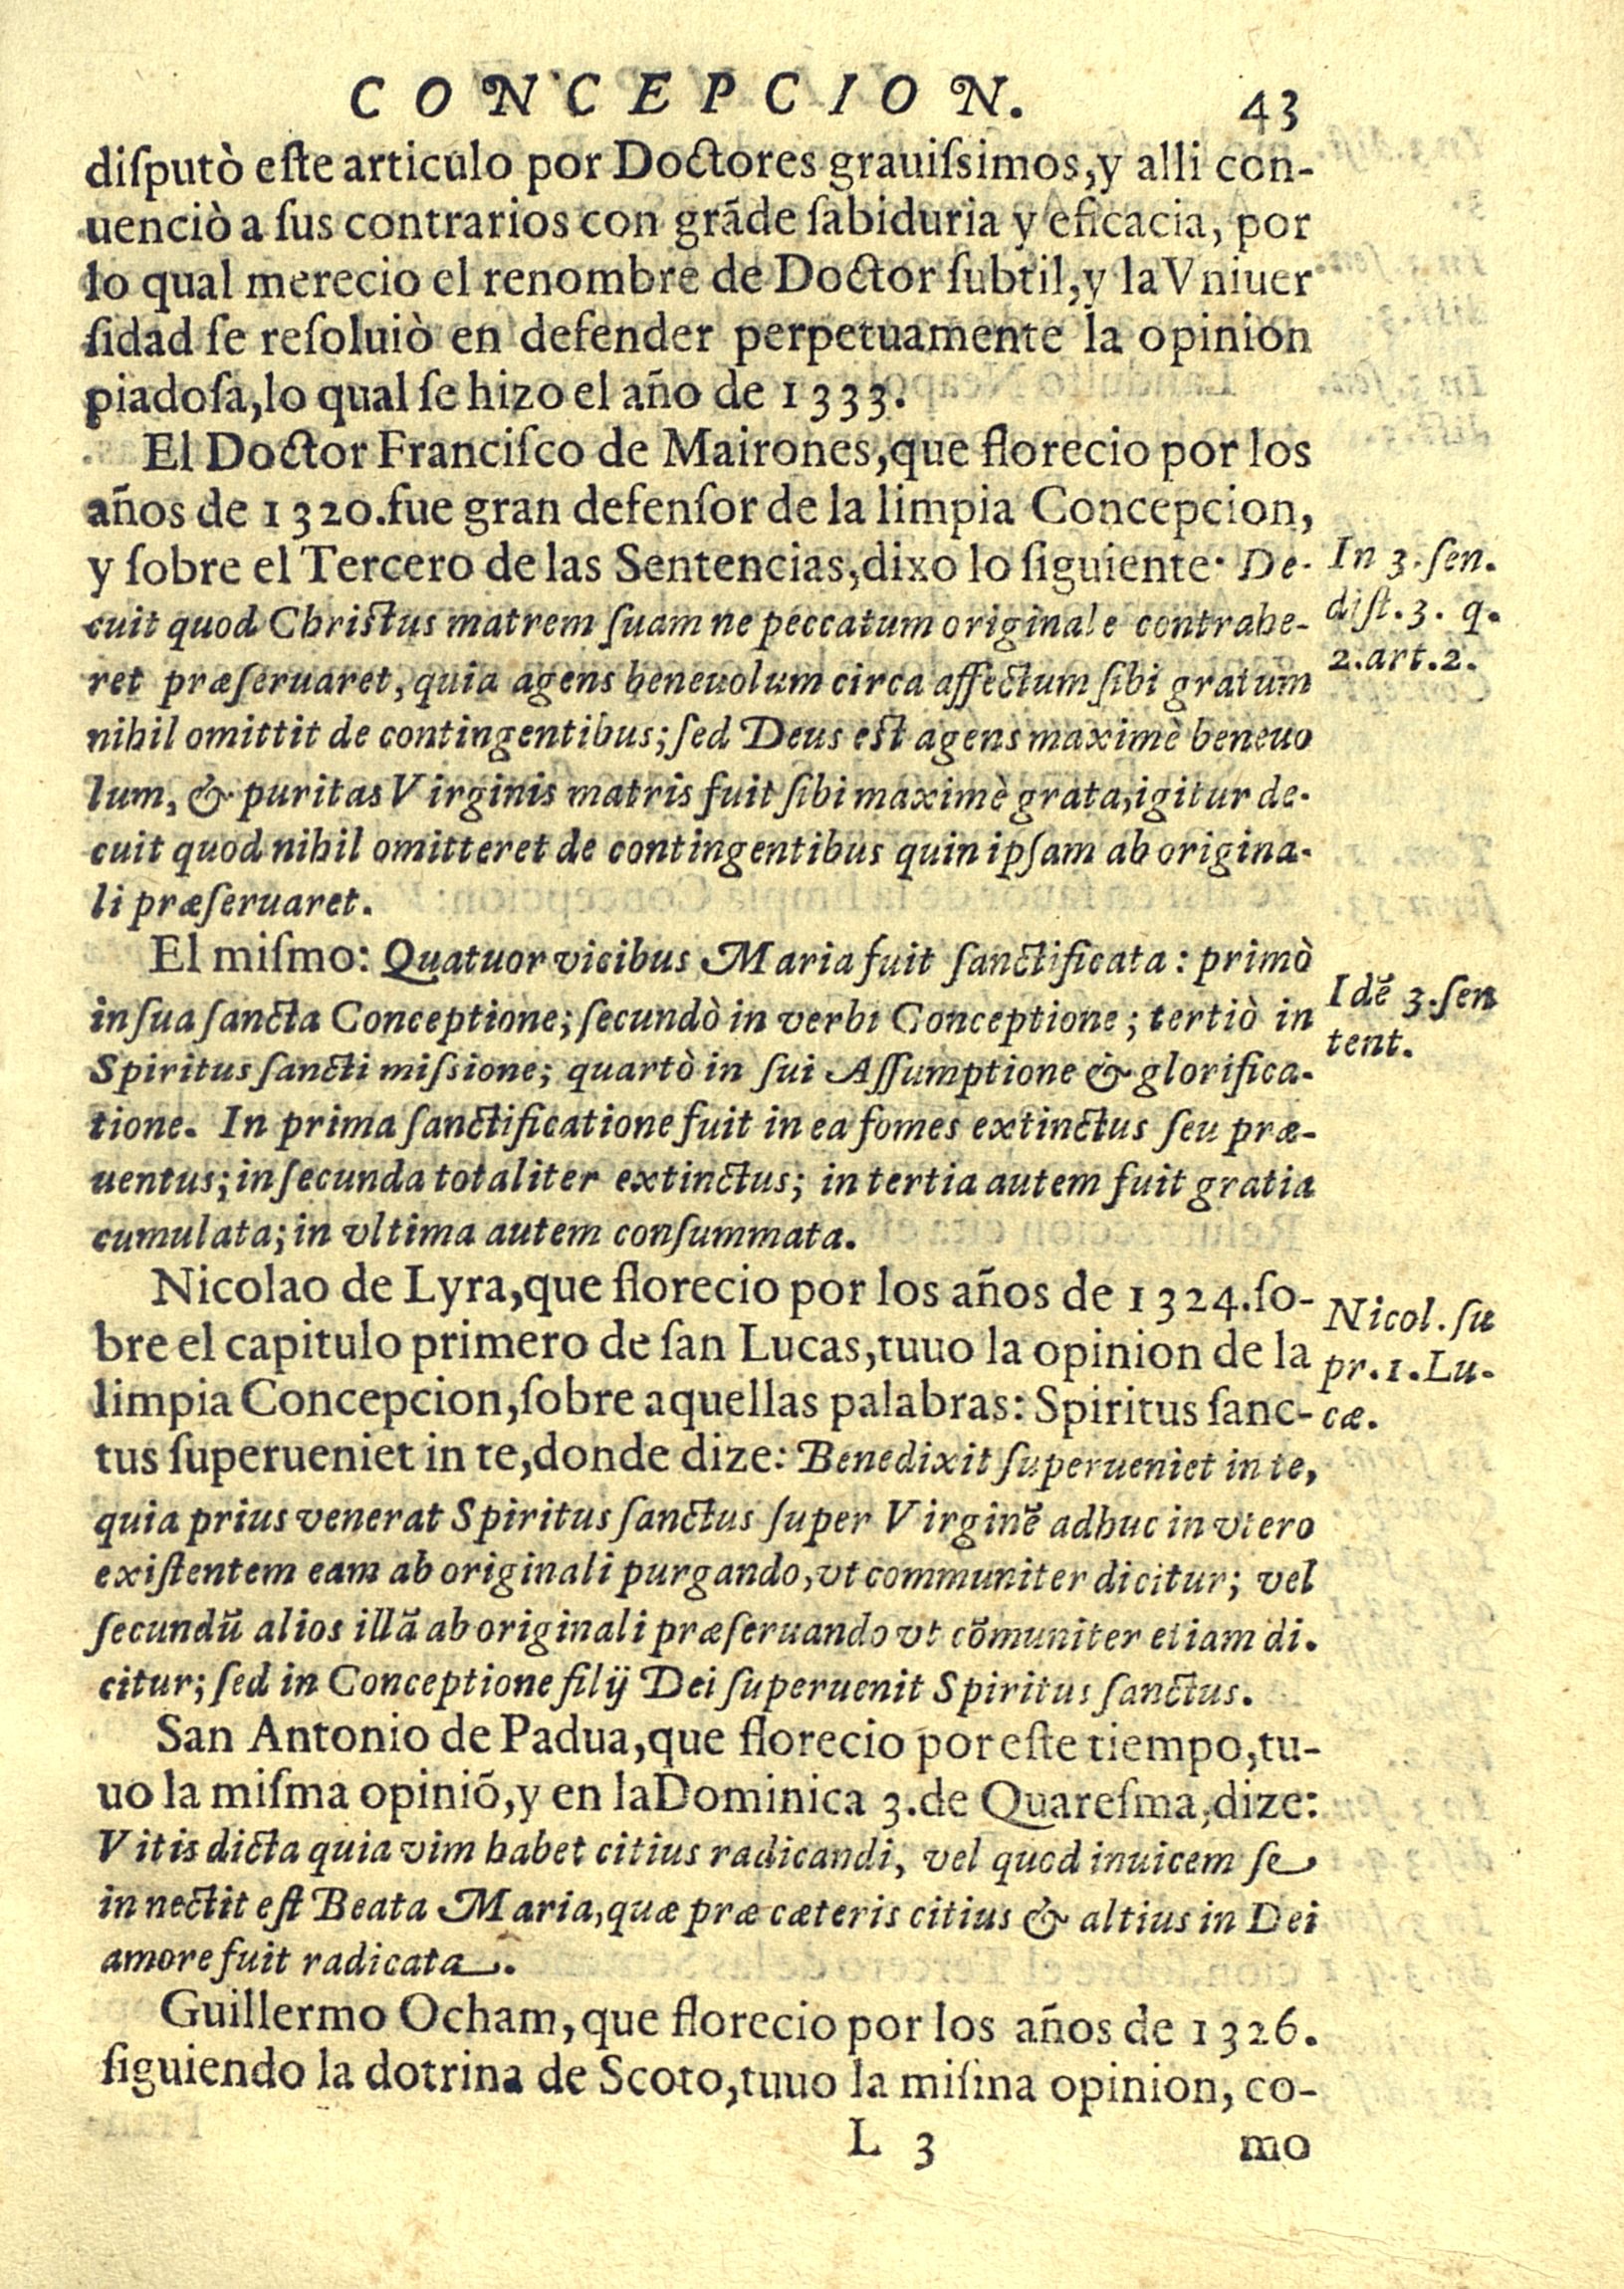 CONCEPCION. 43
diſputò eſte articulo por Doctores grauiſsimos, y alli con-
uenciò a ſus contrarios con grãde ſabiduria y eficacia, por
lo qual merecio el renombre de Doctor ſubtil, y la Vniuer
ſidad ſe reſoluiò en defender perpetuamente la opinion
piadoſa, lo qual ſe hizo el año de 1333.
El Doctor Franciſco de Mairones, que florecio por los
años de 1320. fue gran defenſor de la limpia Concepcion,
y ſobre el Tercero de las Sentencias, dixo lo ſiguiente. De-
cuit quod Christus matrem ſuam ne peccatum originale contrahe-
ret præſeruaret, quia agens beneuolum circa affectum ſibi gratum
nihil omittit de contingentibus; ſed Deus est agens maximè beneuo
lum, & puritas Virginis matris fuit ſibi maximè grata, igitur de-
cuit quod nihil omitteret de contingentibus quin ipſam ab origina-
li præſeruaret.
In 3. ſen.
diſt. 3. q.
2. art. 2.
El miſmo: Quatuor vicibus Maria fuit ſanctificata: primò
in ſua ſancta Conceptione; ſecundò in verbi Conceptione; tertiò in
Spiritus ſancti miſsione; quartò in ſui Aſſumptione & glorifica-
tione. In prima ſanctificatione fuit in ea fomes extinctus ſeu præ-
uentus; in ſecunda totaliter extinctus; in tertia autem fuit gratia
cumulata; in vltima autem conſummata.
Idẽ 3. ſen
tent.
Nicolao de Lyra, que florecio por los años de 1324. ſo-
bre el capitulo primero de ſan Lucas, tuuo la opinion de la
limpia Concepcion, ſobre aquellas palabras: Spiritus ſanc-
tus ſuperueniet in te, donde dize: Benedixit ſuperueniet in te,
quia prius venerat Spiritus ſanctus ſuper Virginẽ adhuc in vtero
exiſtentem eam ab originali purgando, vt communiter dicitur; vel
ſecundũ alios illã ab originali præſeruando vt cõmuniter etiam di-
citur; ſed in Conceptione filij Dei ſuperuenit Spiritus ſanctus.
Nicol. ſu
pr. 1. Lu-
cæ.
San Antonio de Padua, que florecio por eſte tiempo, tu-
uo la miſma opiniõ, y en la Dominica 3. de Quareſma, dize:
Vitis dicta quia vim habet citius radicandi, vel quod inuicem ſe
innectit eſt Beata Maria, quæ præ cæteris citius & altius in Dei
amore fuit radicata.
Guillermo Ocham, que florecio por los años de 1326.
ſiguiendo la dotrina de Scoto, tuuo la miſma opinion, co-
L 3 mo